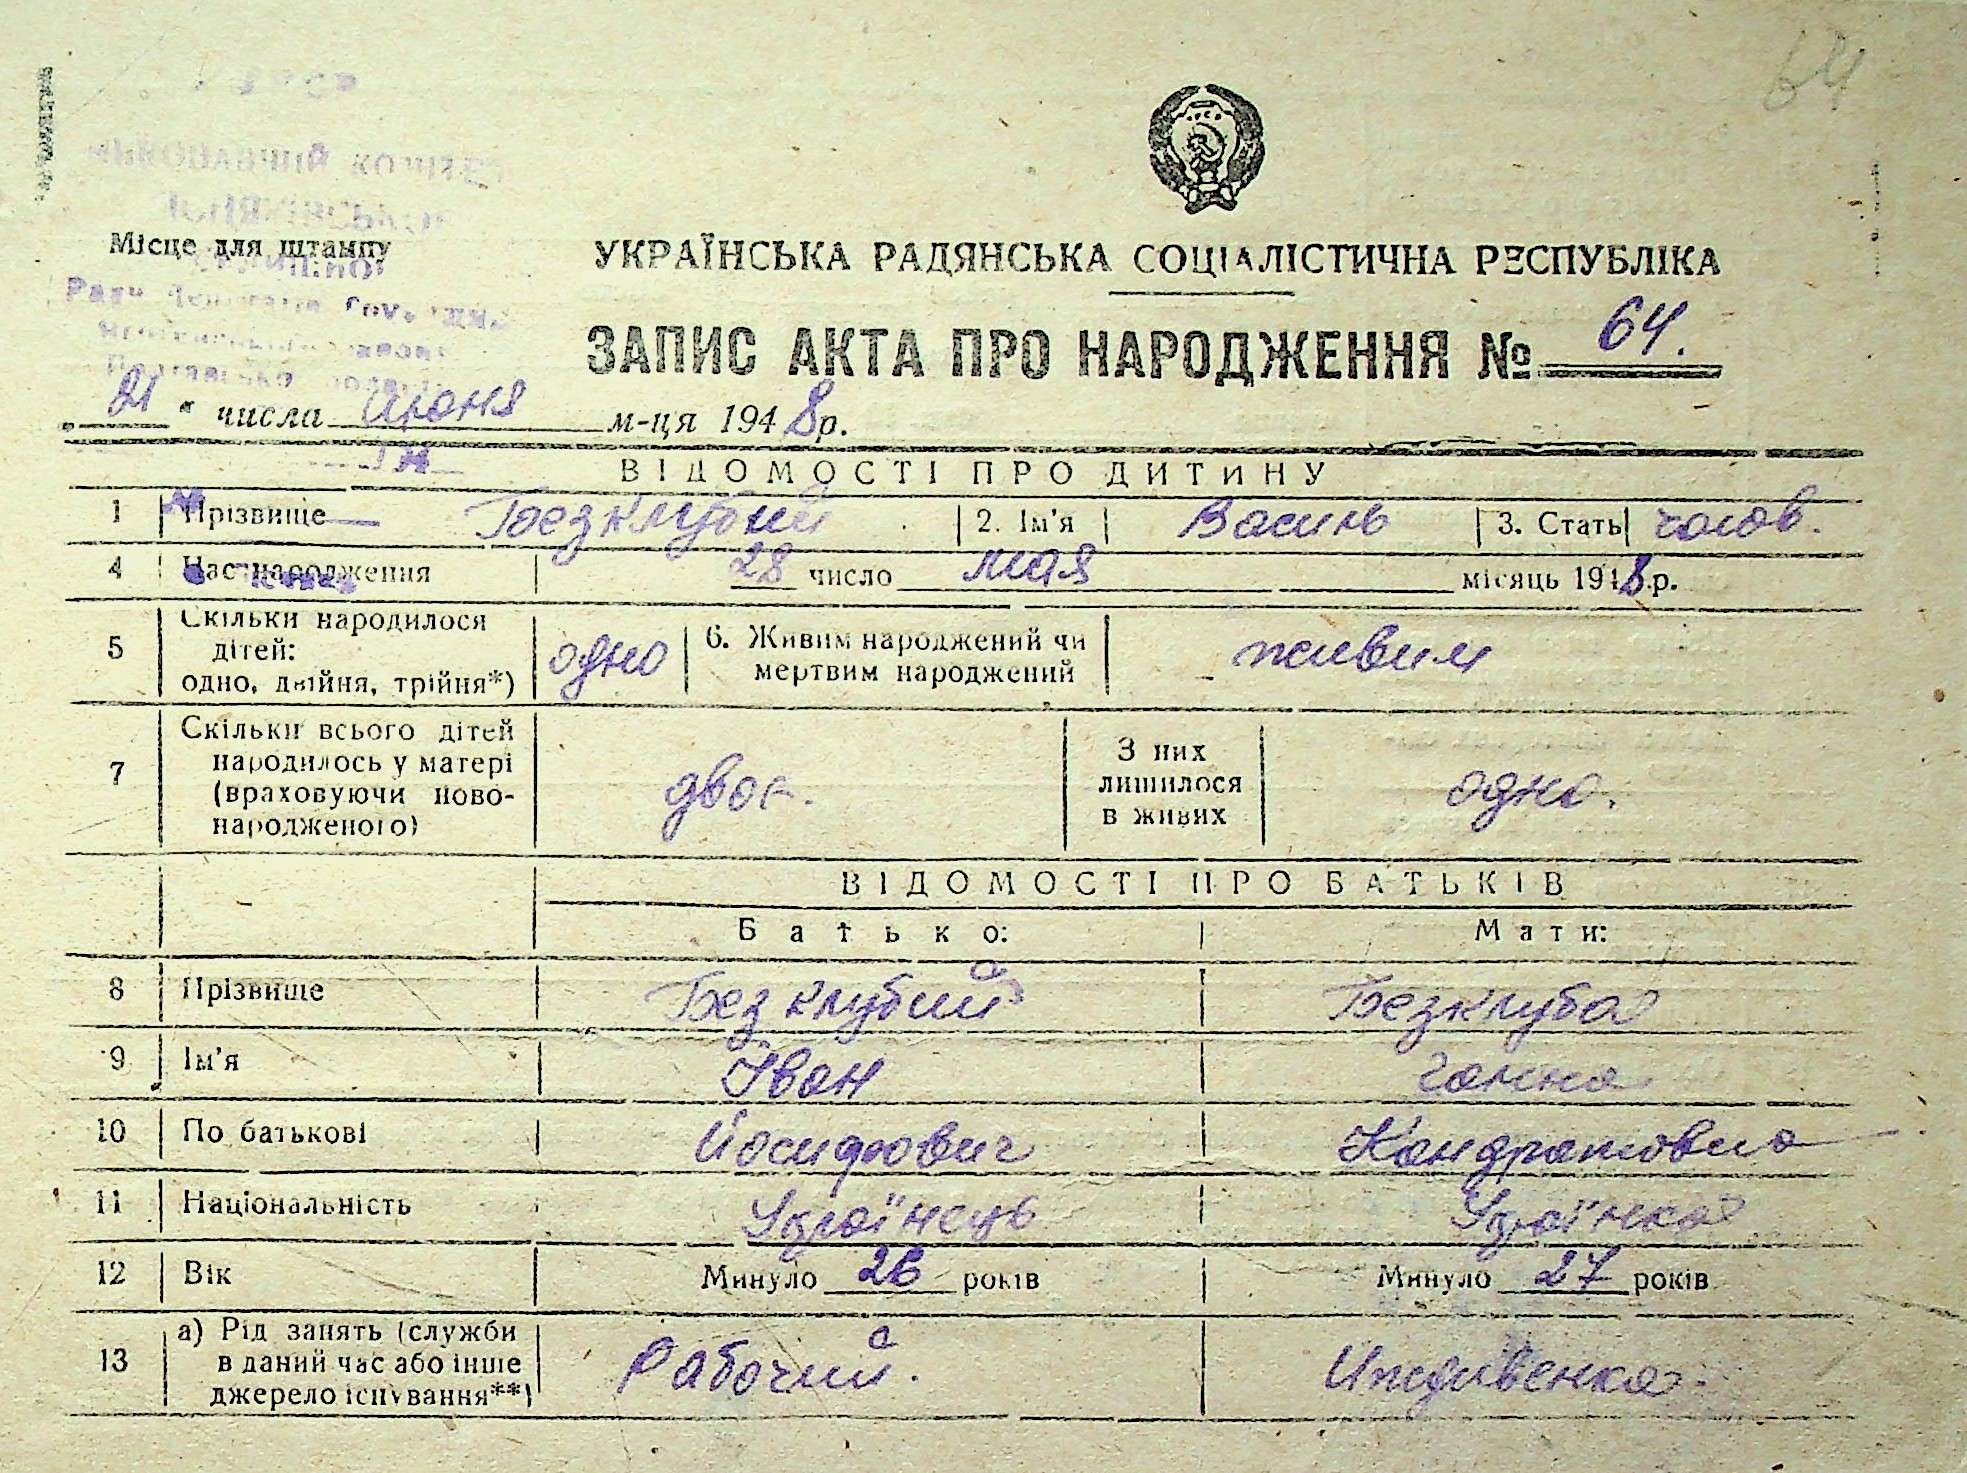 64
Місце для штампу
УКРАЇНСЬКА РАДЯНСЬКА СОЦІАЛІСТИЧНА РЕСПУБЛІКА
ЗАПИС АКТА ПРО НАРОДЖЕННЯ № 64.
„ 21 " числа Июня м-ця 1948 р.
ВІДОМОСТІ ПРО ДИТИНУ
1 Прізвище Безклубий 2. Ім'я Василь 3. Стать чолов.
4 Час народження 28 число мая місяць 1948 р.
5 Скільки народилося дітей: одно, двійня, трійня*) одно 6. Живим народжений чи мертвим народжений живим
7 Скільки всього дітей народилось у матері (враховуючи новонародженого) двоє. З них лишилося в живих одно.
ВІДОМОСТІ ПРО БАТЬКІВ
Батько: Мати:
8 Прізвище Безклубий Безклубая
9 Ім'я Іван Ганна
10 По батькові Йосифович Кондратовна
11 Національність Українець Українка
12 Вік Минуло 26 років Минуло 27 років
13 а) Рід занять (служби в даний час або інше джерело існування**) Рабочий. Иждивенка.